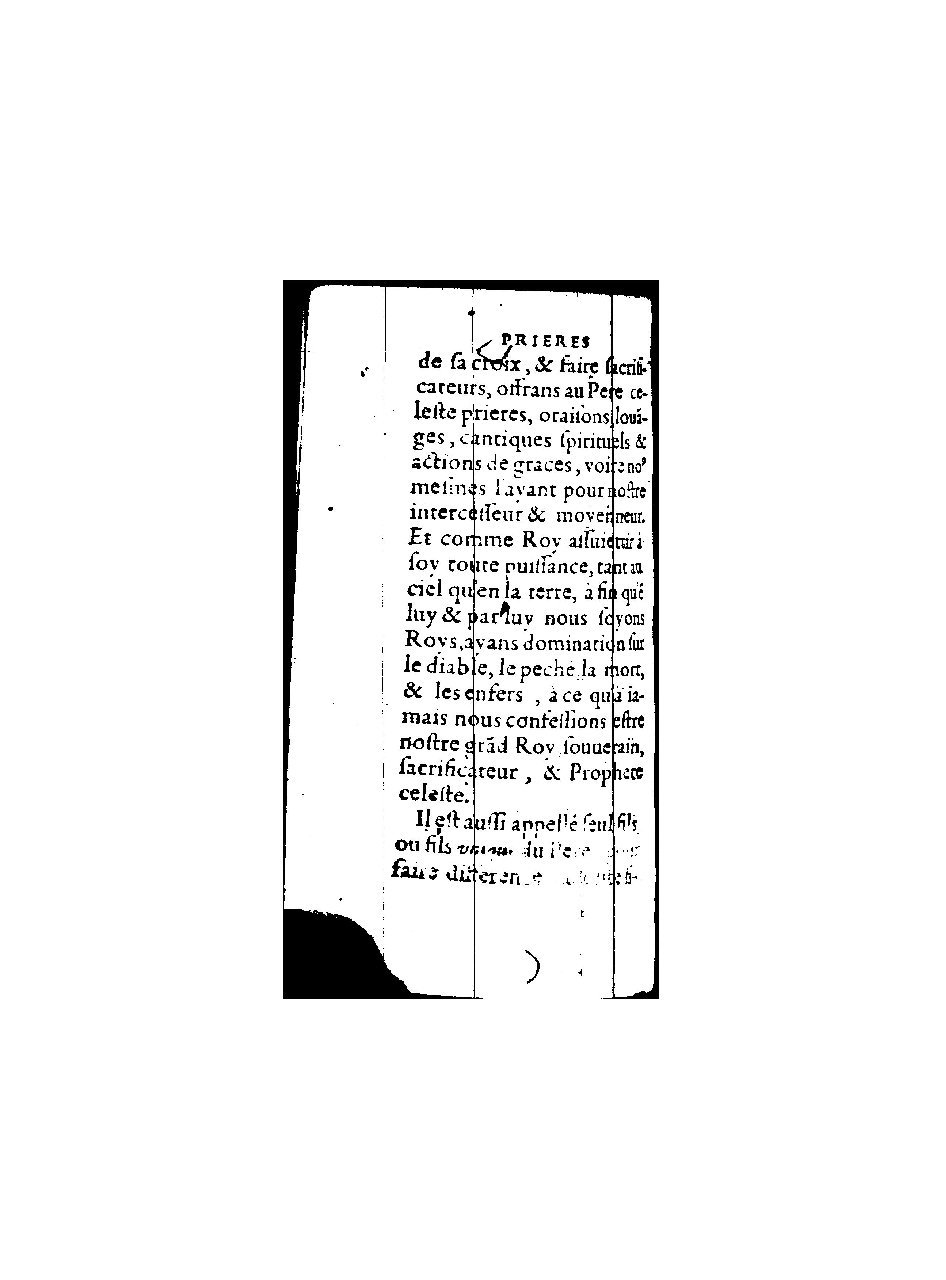 PRIERES
de ſa croix, & faire ſacrifi-
cateurs, offrans au Pere ce-
leſte prieres, oraiſons, louā-
ges, cantiques ſpirituels &
actions de graces, voire noꝰ
meſmes l'ayant pour noſtre
interceſſeur & moyenneur.
Et comme Roy aſſuiettir à
ſoy toute puiſſance, tant au
ciel qu'en la terre, à fin que
luy & par luy nous ſoyons
Roys, ayans domination ſur
le diable, le peché, la mort,
& les enfers, à ce qu'à ia-
mais nous confeſſions eſtre
noſtre grād Roy ſouuerain,
ſacrificateur, & Prophete
celeſte.
Il eſt auſſi appellé ſeul fils,
ou fils du Pere
faire difference